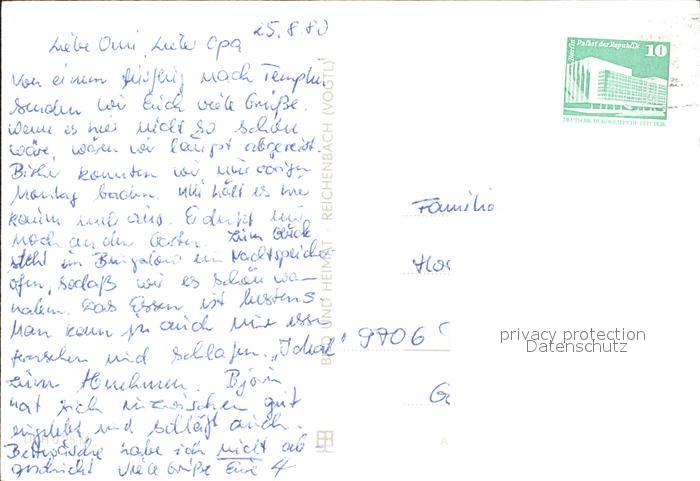 25.8.80
Liebe Omi, Lieber Opa
Von einem Ausflug nach Templin
senden wir Euch viele Grüße.
Wenn es hier nicht so schön
wäre, wären wir längst abgereist.
Bisher konnten wir nur vorigen
Montag baden.
kaum
noch an den Garten. Zum Glück
steht im Bungalow ein Nachtspeicher
ofen, sodaß wir es schön wa-
haben. Das Essen ist bestens
Man kann ja auch nur essen
fernsehen und schlafen. „Ideal“
zum Abnehmen. Björn
hat sich inzwischen gut
eingelebt und schläft auch.
Bettwäsche habe ich nicht ab-
geschickt Viele Grüße Eure 4
BILD UND HEIMAT · REICHENBACH (VOGTL)
Berlin Palast der Republik 10
DEUTSCHE DEMOKRATISCHE REPUBLIK
Familie
9706
privacy protection
Datenschutz
A